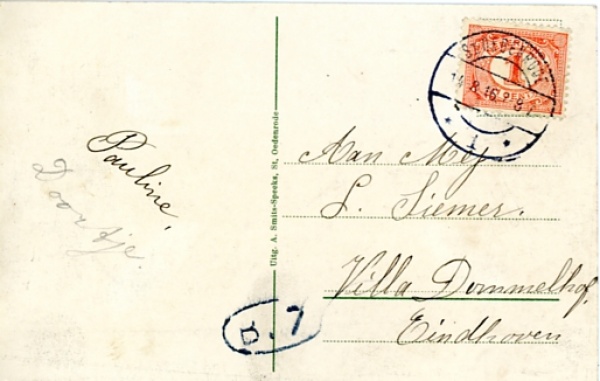 Pauline,
Doortje.
Uitg. A. Smits-Speeks, St. Oedenrode
ST. OEDENRODE
14.8.16
1
1
Aan Mej
L. Siemer.
Villa Dommelhof,
Eindhoven
B.7